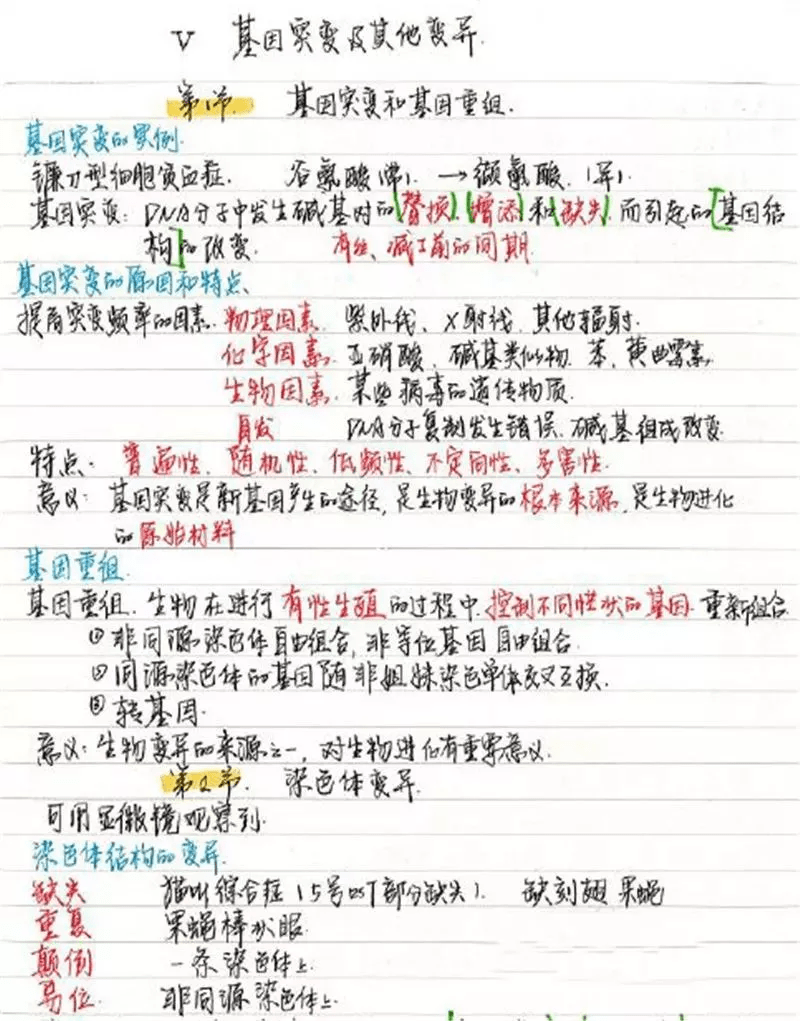 V 基因突变及其他变异.
第1节. 基因突变和基因重组.
基因突变的实例.
镰刀型细胞贫血症. 谷氨酸(常). →缬氨酸.(异).
基因突变: DNA分子中发生碱基对的(替换)、(增添)和(缺失)而引起的[基因结
构]的改变. 有丝、减Ⅰ前的间期.
基因突变的原因和特点、
提高突变频率的因素. 物理因素. 紫外线、X射线、其他辐射.
化学因素. 亚硝酸、碱基类似物. 苯、黄曲霉素.
生物因素. 某些病毒的遗传物质.
自发 DNA分子复制发生错误、碱基组成改变.
特点: 普遍性、随机性、低频性、不定向性、多害性.
意义: 基因突变是新基因产生的途径,是生物变异的根本来源,是生物进化
的原始材料
基因重组.
基因重组. 生物在进行有性生殖的过程中.控制不同性状的基因.重新组合
①非同源染色体自由组合,非等位基因自由组合.
②同源染色体的基因随非姐妹染色单体交叉互换.
③转基因.
意义:生物变异的来源之一,对生物进化有重要意义.
第2节. 染色体变异.
可用显微镜观察到.
染色体结构的变异.
缺失 猫叫综合征(5号 部分缺失). 缺刻翅 果蝇
重复 果蝇棒状眼.
颠倒 一条染色体上.
易位. 非同源染色体上.